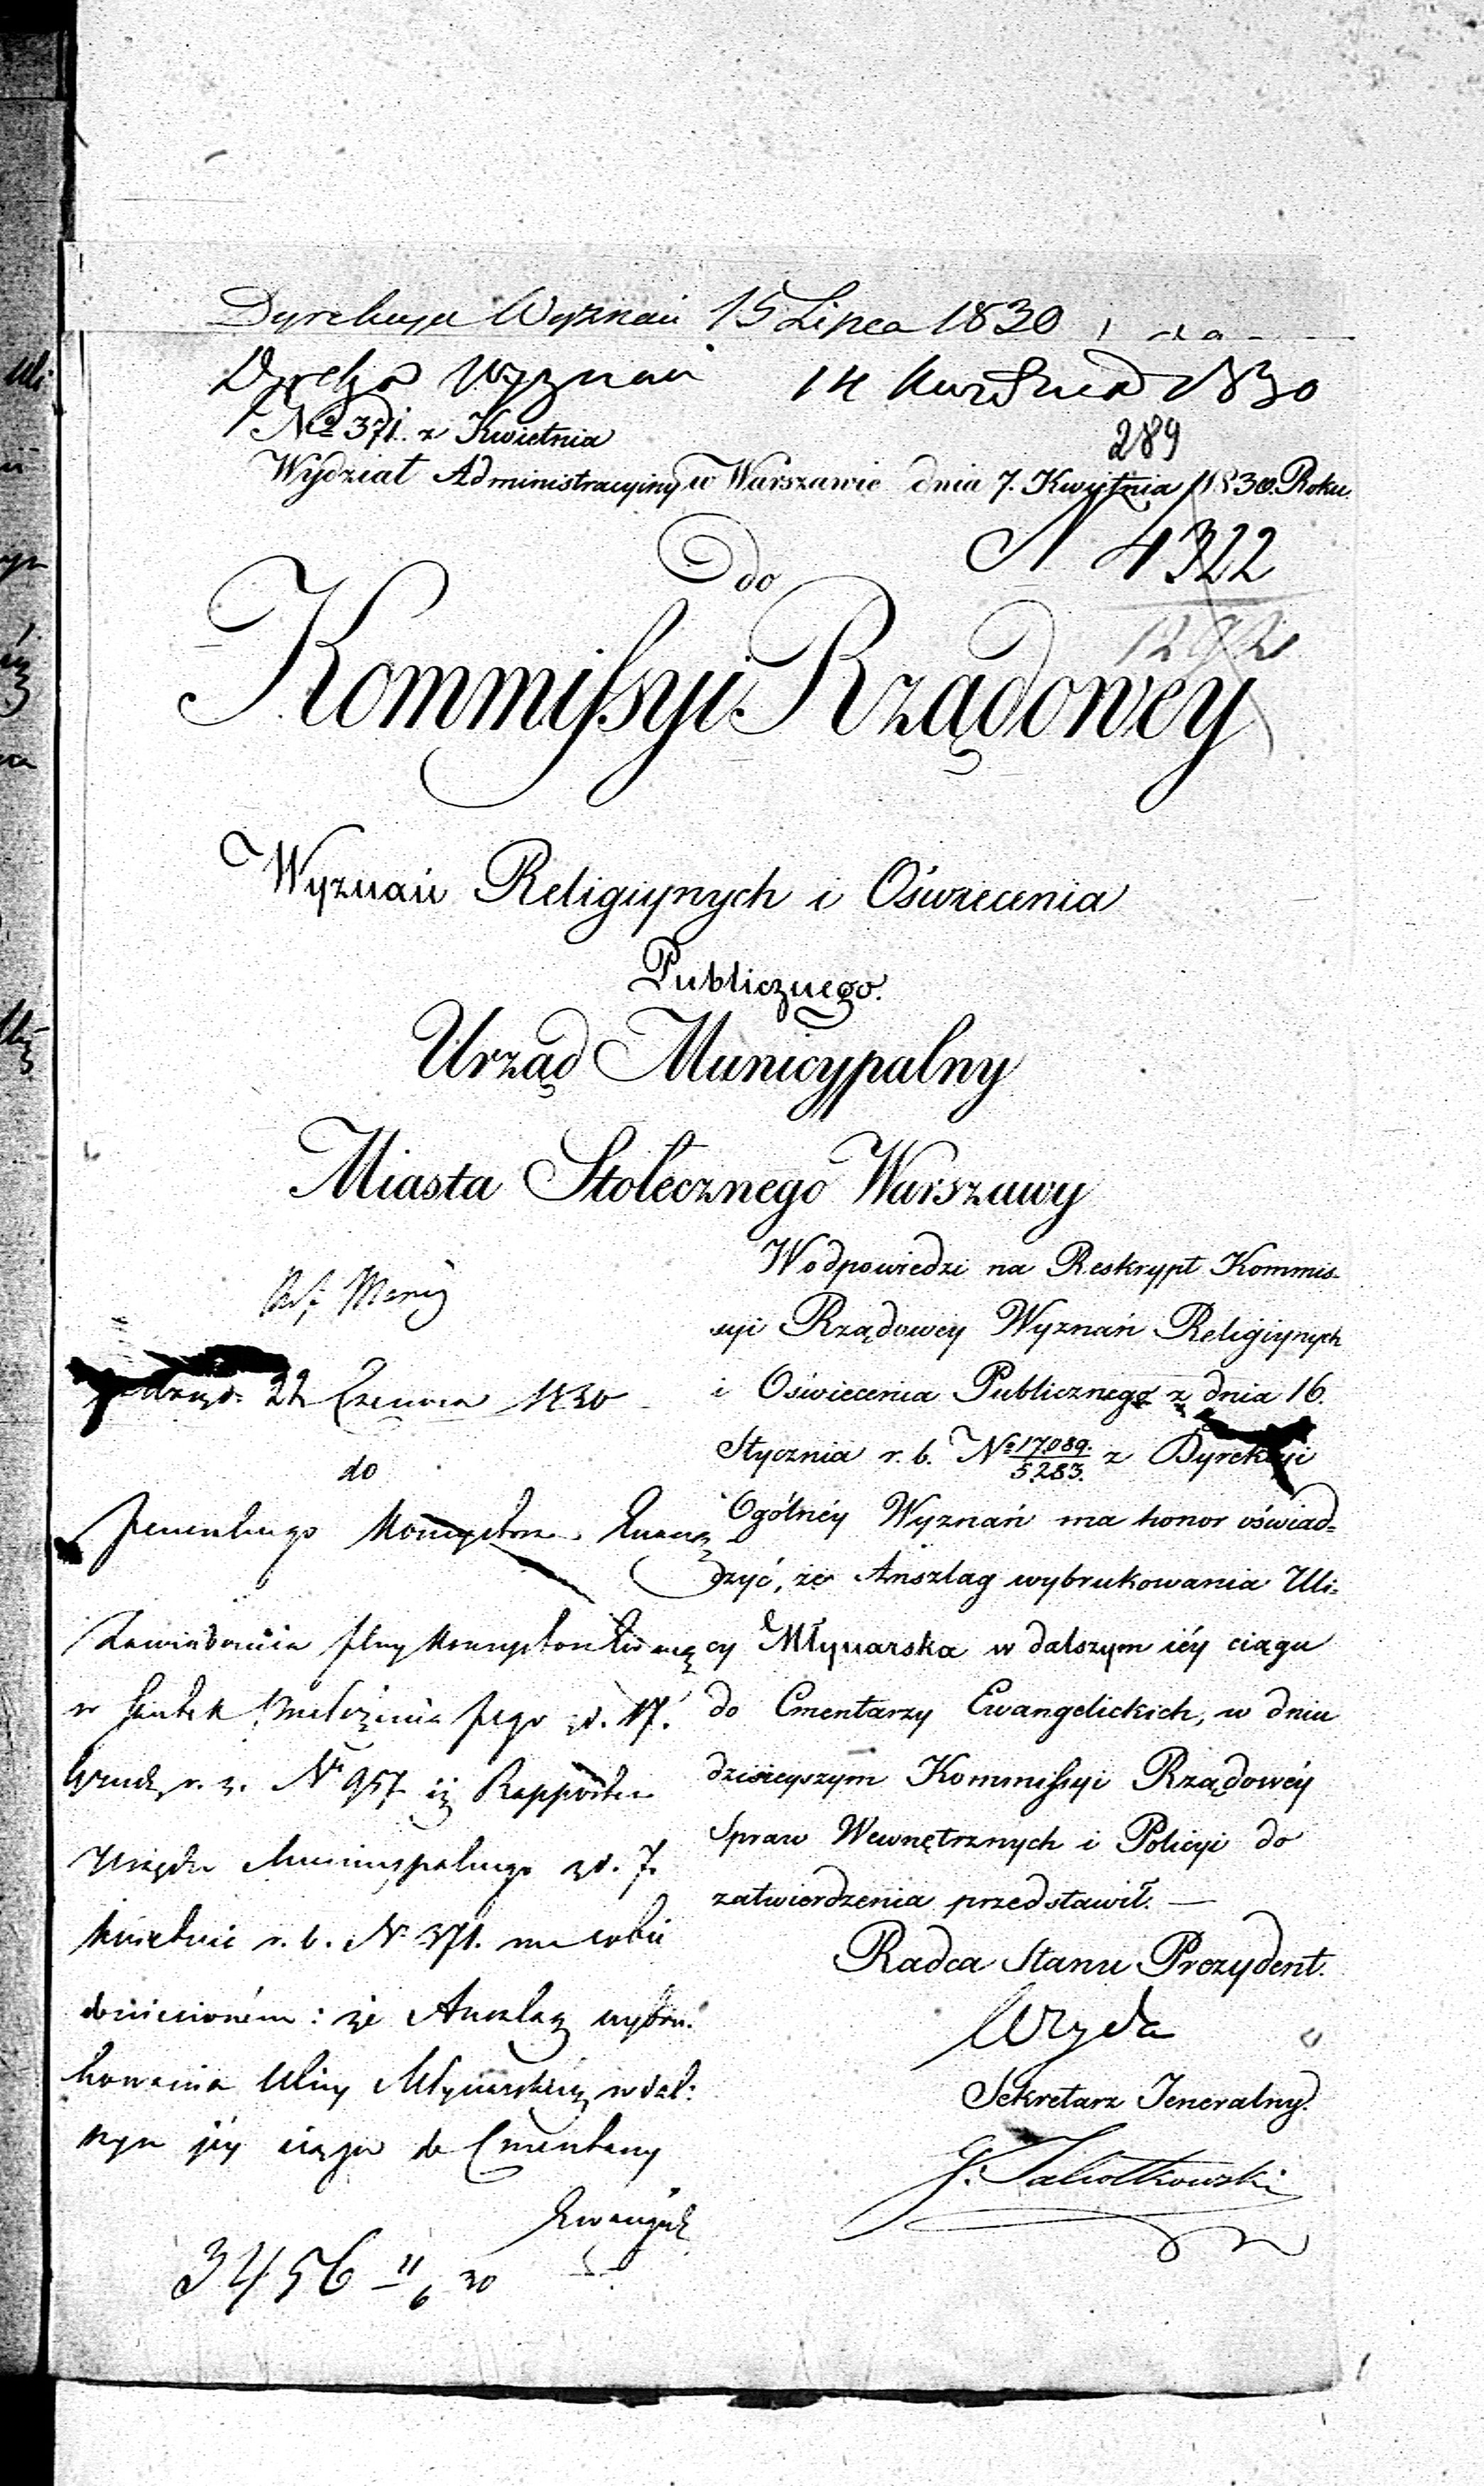 Dyrekcya Wyznań 15 Lipca 1830
Dyrekcya Wyznań 14 Kwietnia 1830
No 371. z Kwietnia
289
Wydział Administracyiny w Warszawie dnia 7. Kwietnia 1830. Roku.
N 4322
1292
do
Kommissyi Rządowey
Wyznań Religiynych i Oświecenia
Publicznego.
Urząd Municypalny
Miasta Stołecznego Warszawy
W odpowiedzi na Reskrypt Kommis-
syi Rządowey Wyznań Religiynych
i Oświecenia Publicznego z dnia 16.
Stycznia r. b. No 17089./5283. z Dyrekcyi
Ogólnéy Wyznań ma honor oświad-
czyć, że Anszlag wybrukowania Uli-
cy Młynarska w dalszym iéy ciągu
do Cmentarzy Ewangelickich, w dniu
dzisieyszym Kommissyi Rządowéy
Spraw Wewnętrznych i Policyi do
zatwierdzenia przedstawił. —
Radca Stanu Prezydent.
Sekretarz Jeneralny.
G. Jabłkowski
22 Czerwca 1830
do
Jeneralnego Konsystorza Ewang
Zawiadamia Jlny Konsystorz Ewang
w skutek Jego z d. 17.
Grud. r. z. No 957 iż Rapportem
Urzędu Municypalnego z d. 7.
Kwietnia r. b. No 371. ma sobie
doniesioném: że Anszlag wybru-
kowania Ulicy Młynarskiéy w dal-
szym jéy ciągu do Cmentarzy
Ewangiel
3456 11/6 30